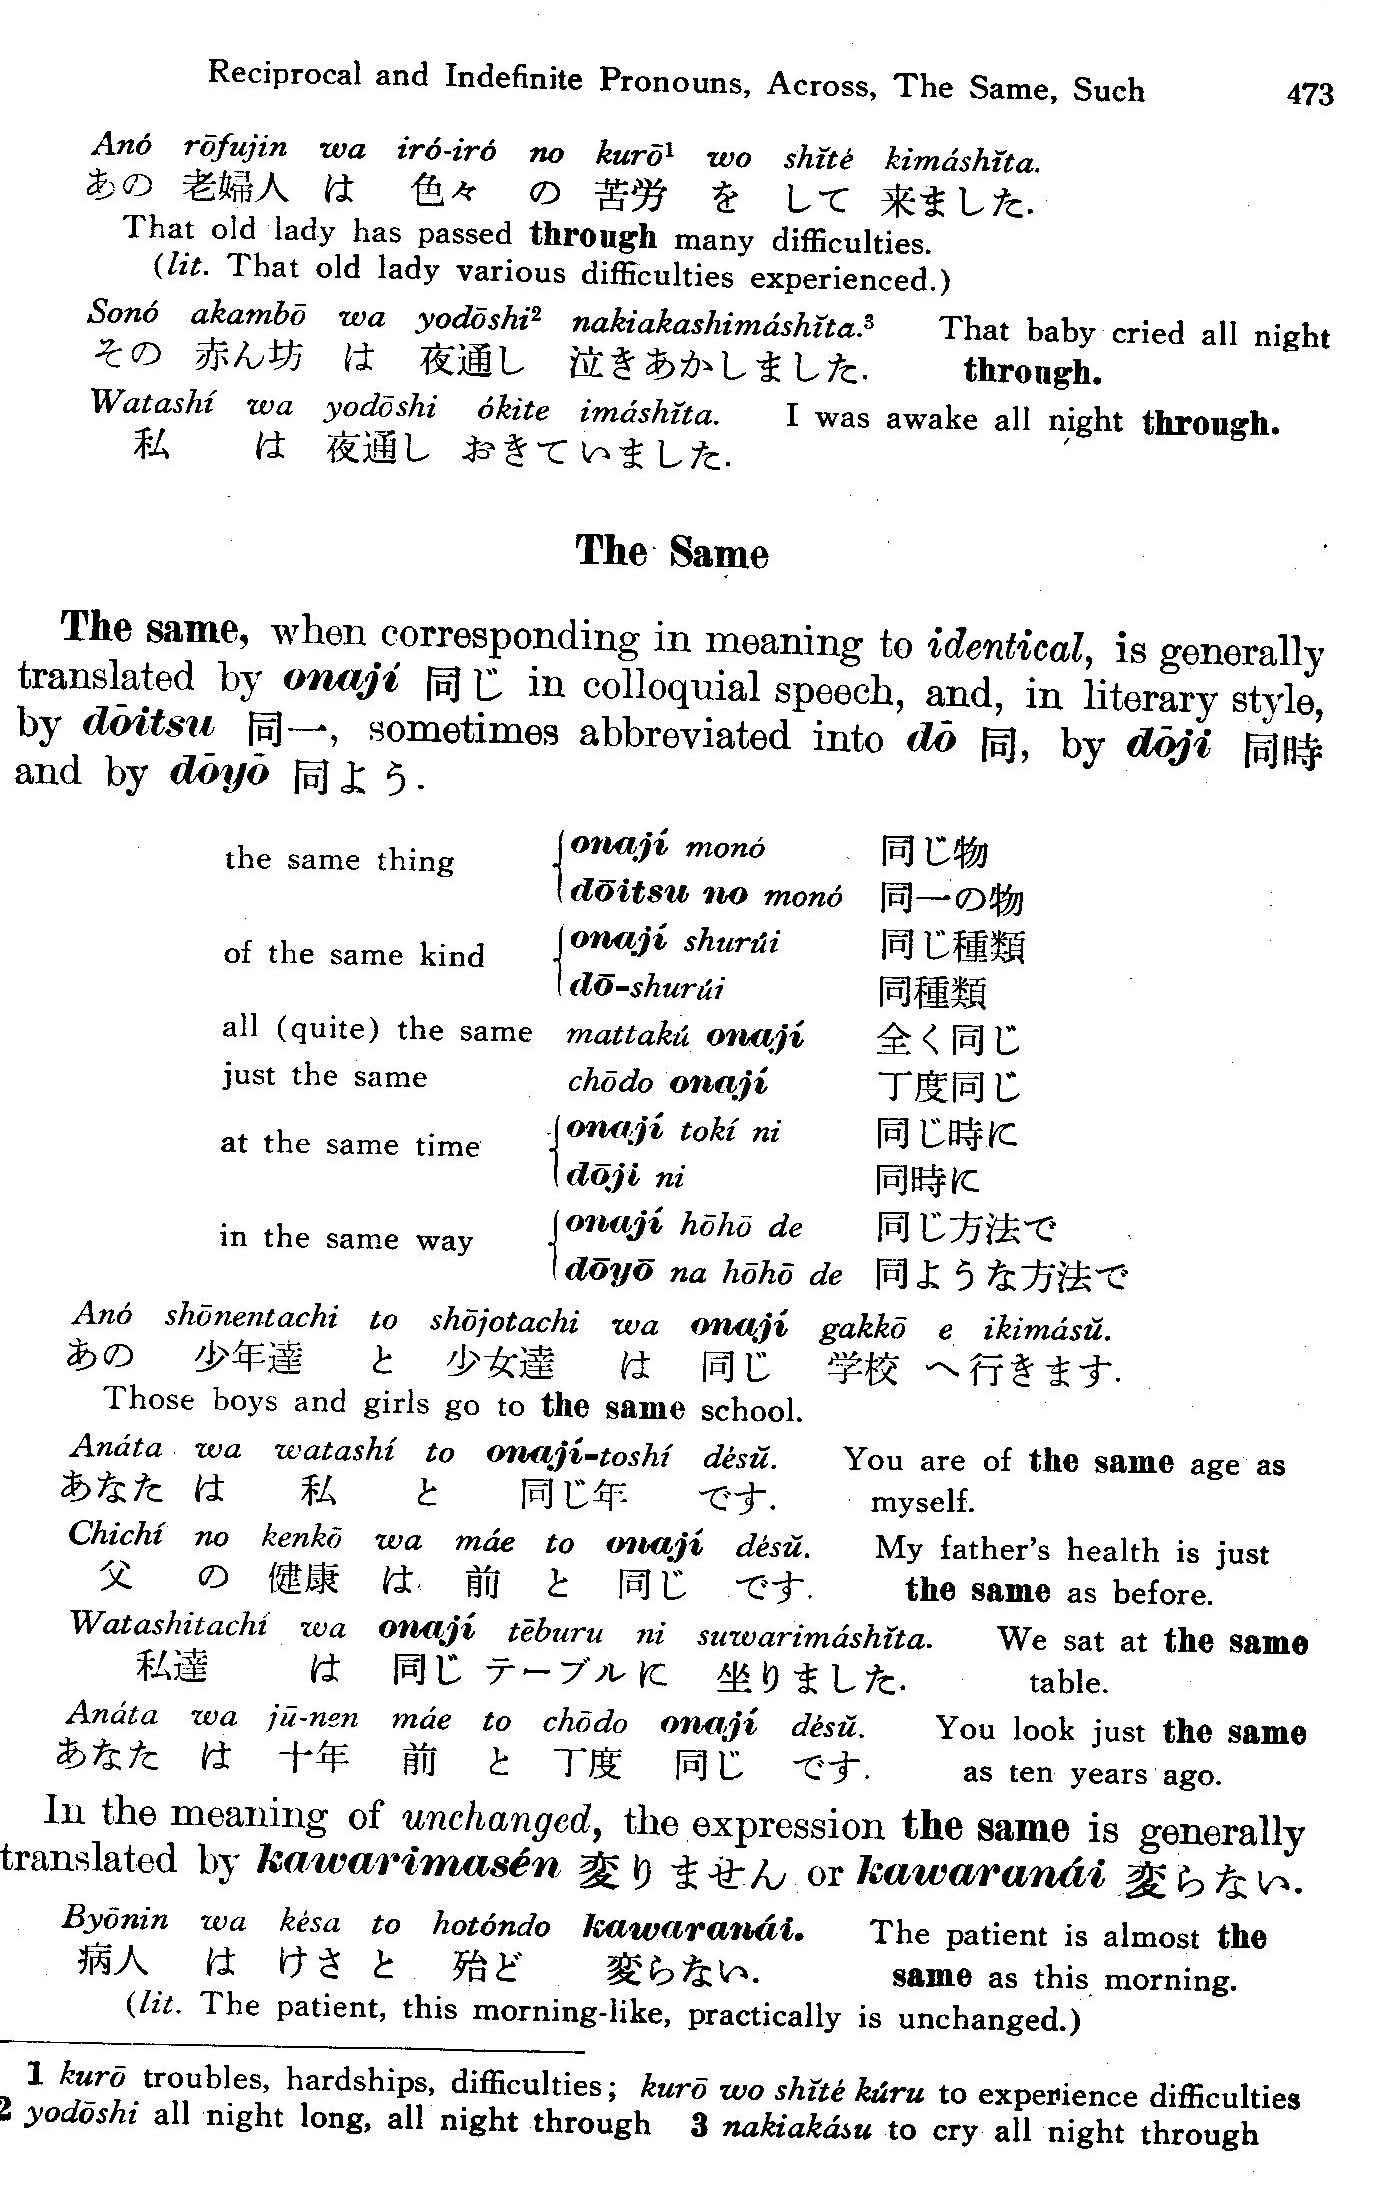 Reciprocal and Indefinite Pronouns, Across, The Same, Such 473
Anó rōfujin wa iró-iró no kurō¹ wo shĭté kimáshĭta.
あの 老婦人 は 色々 の 苦労 を して 来ました.
That old lady has passed through many difficulties.
(lit. That old lady various difficulties experienced.)
Sonó akambō wa yodōshi² nakiakashimáshĭta.³ That baby cried all night
その 赤ん坊 は 夜通し 泣きあかしました. through.
Watashí wa yodōshi ókite imáshĭta. I was awake all night through.
私 は 夜通し おきていました.
The Same
The same, when corresponding in meaning to identical, is generally
translated by onají 同じ in colloquial speech, and, in literary style,
by dōitsu 同一, sometimes abbreviated into dō 同, by dōji 同時
and by dōyō 同よう.
the same thing onají monó 同じ物
dōitsu no monó 同一の物
of the same kind onají shurúi 同じ種類
dō-shurúi 同種類
all (quite) the same mattakú onají 全く同じ
just the same chōdo onají 丁度同じ
at the same time onají tokí ni 同じ時に
dōji ni 同時に
in the same way onají hōhō de 同じ方法で
dōyō na hōhō de 同ような方法で
Anó shōnentachi to shōjotachi wa onají gakkō e ikimásŭ.
あの 少年達 と 少女達 は 同じ 学校 へ行きます.
Those boys and girls go to the same school.
Anáta wa watashí to onají-toshí désŭ. You are of the same age as
あなた は 私 と 同じ年 です. myself.
Chichí no kenkō wa máe to onají désŭ. My father's health is just
父 の 健康 は 前 と 同じ です. the same as before.
Watashitachí wa onají tēburu ni suwarimáshĭta. We sat at the same
私達 は 同じ テーブルに 坐りました. table.
Anáta wa jū-nen máe to chōdo onají désŭ. You look just the same
あなた は 十年 前 と 丁度 同じ です. as ten years ago.
In the meaning of unchanged, the expression the same is generally
translated by kawarimasén 変りません or kawaranái 変らない.
Byōnin wa késa to hotóndo kawaranái. The patient is almost the
病人 は けさ と 殆ど 変らない. same as this morning.
(lit. The patient, this morning-like, practically is unchanged.)
1 kurō troubles, hardships, difficulties; kurō wo shĭté kúru to experience difficulties
2 yodōshi all night long, all night through 3 nakiakásu to cry all night through